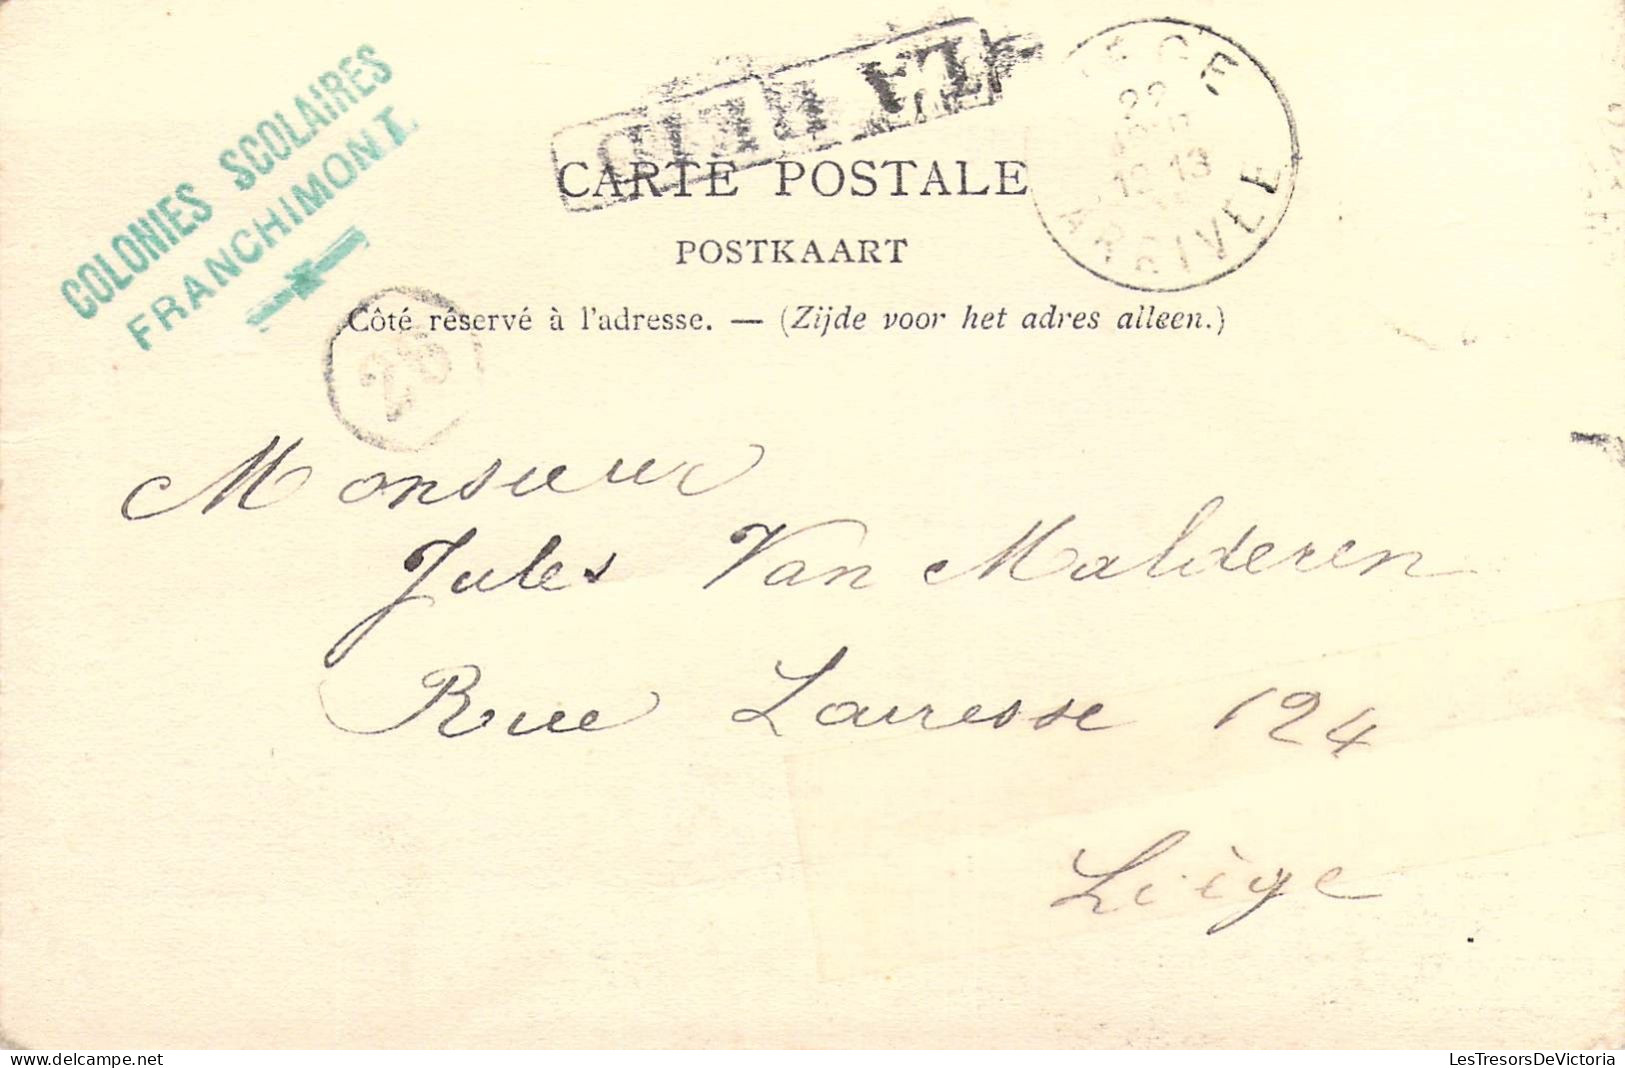 COLONIES SCOLAIRES
FRANCHIMONT
CARTE POSTALE
POSTKAART
Côté réservé à l'adresse. — (Zijde voor het adres alleen.)
22
ARRIVEE
Monsieur
Jules Van Malderen
Rue Lairesse 124
Liège
LesTresorsDeVictoria